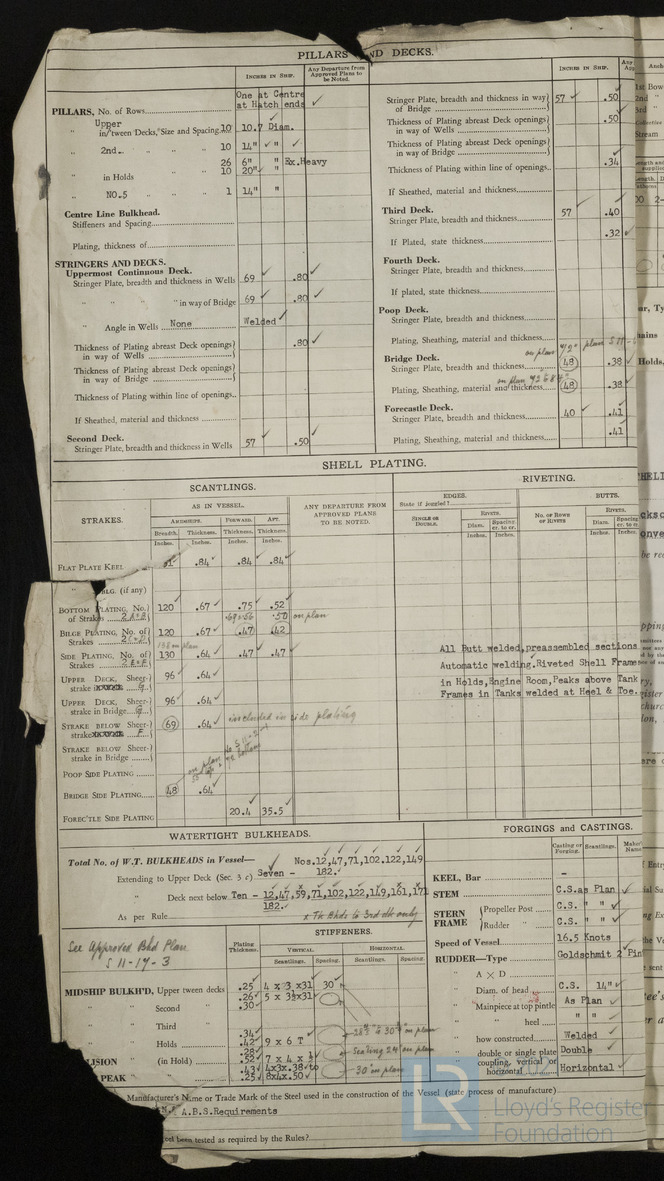 PILLARS AND DECKS.
Inches in Ship.
Any Departure from Approved Plans to be Noted.
PILLARS, No. of Rows
One at Centre at Hatch ends
Upper in/'tween Decks, Size and Spacing. 10 10.7 Diam.
" 2nd " " " 10 14" " "
26 6" " Ex.Heavy
" in Holds " " 10 20" "
" NO.5 " " 1 14" "
Centre Line Bulkhead.
Stiffeners and Spacing
Plating, thickness of
STRINGERS AND DECKS.
Uppermost Continuous Deck.
Stringer Plate, breadth and thickness in Wells 69 .80
" " " " in way of Bridge 69 .80
" Angle in Wells None Welded
Thickness of Plating abreast Deck openings in way of Wells .80
Thickness of Plating abreast Deck openings in way of Bridge
Thickness of Plating within line of openings
If Sheathed, material and thickness
Second Deck.
Stringer Plate, breadth and thickness in Wells 57 .50
Inches in Ship.
Stringer Plate, breadth and thickness in way of Bridge 57 .50
Thickness of Plating abreast Deck openings in way of Wells .50
Thickness of Plating abreast Deck openings in way of Bridge
Thickness of Plating within line of openings .34
If Sheathed, material and thickness
Third Deck.
Stringer Plate, breadth and thickness 57 .40
If Plated, state thickness .32
Fourth Deck.
Stringer Plate, breadth and thickness
If plated, state thickness
Poop Deck.
Stringer Plate, breadth and thickness
Plating, Sheathing, material and thickness
Bridge Deck.
on plan 42" plan S 11-
Stringer Plate, breadth and thickness 48 .38
on plan
Plating, Sheathing, material and thickness 48 .38
Forecastle Deck.
Stringer Plate, breadth and thickness 40 .41
Plating, Sheathing, material and thickness .41
SHELL PLATING.
SCANTLINGS.
STRAKES.
AS IN VESSEL.
Amidships. Forward. Aft.
Breadth. Thickness. Thickness. Thickness.
Inches. Inches. Inches. Inches.
ANY DEPARTURE FROM APPROVED PLANS TO BE NOTED.
Flat Plate Keel .84 .84 .84
(if any)
Bottom Plating, No. of Strakes 120 .67 .75 .52
.50 on plan
Bilge Plating, No. of Strakes 120 .67 .47 .42
138 on plan
Side Plating, No. of Strakes 130 .64 .47 .47
Upper Deck, Sheer-strake G 96 .64
Upper Deck, Sheer-strake in Bridge G 96 .64
Strake below Sheer-strake F 69 .64 included in side plating
Strake below Sheer-strake in Bridge
Poop Side Plating
on plan
Bridge Side Plating 48 .64
Forec'tle Side Plating 20.4 35.5
RIVETING.
EDGES.
State if joggled?
BUTTS.
Single or Double.
Rivets.
Diam. Spacing cr. to cr.
Inches. Inches.
No. of Rows of Rivets
Rivets.
Diam. Spacing cr. to c
Inches. Inches.
All Butt welded,preassembled sections
Automatic welding.Riveted Shell Frame
in Holds,Engine Room,Peaks above Tank
Frames in Tanks welded at Heel & Toe.
WATERTIGHT BULKHEADS.
Total No. of W.T. BULKHEADS in Vessel—
Extending to Upper Deck (Sec. 3 c) Seven - Nos.12,47,71,102.122,149 182.
" Deck next below Ten - 12,47,59,71,102,122,149,161,171 182.
As per Rule x Th Bhds to 3rd dk only
See Approved Bhd Plan
S 11-17-3
Plating Thickness.
STIFFENERS.
Vertical. Horizontal.
Scantlings. Spacing. Scantlings. Spacing.
MIDSHIP BULKH'D, Upper tween decks .25 4 x 3 x31 30
.26 5 x 3½x31
" " Second " .30
" " Third " .34
" " Holds .42 9 x 6 T
LISION " (in Hold) .52 7 x 4 x
.43 4x3x.38/to
PEAK " " .25 8x4x.50
on plan
30" on plan
FORGINGS and CASTINGS.
Casting or Forging. Scantlings. Maker's Name
KEEL, Bar -
STEM C.S.as Plan
STERN FRAME Propeller Post C.S. " "
Rudder " C.S. " "
Speed of Vessel 16.5 Knots
RUDDER—Type Goldschmit 2 Pin
" A × D
" Diam. of head C.S. 14"
" Mainpiece at top pintle As Plan
" " heel " "
" how constructed Welded
" double or single plate Double
" coupling, vertical or horizontal Horizontal
Manufacturer's Name or Trade Mark of the Steel used in the construction of the Vessel (state process of manufacture)
A.B.S.Requirements
been tested as required by the Rules?
LR
Lloyd's Register
Foundation